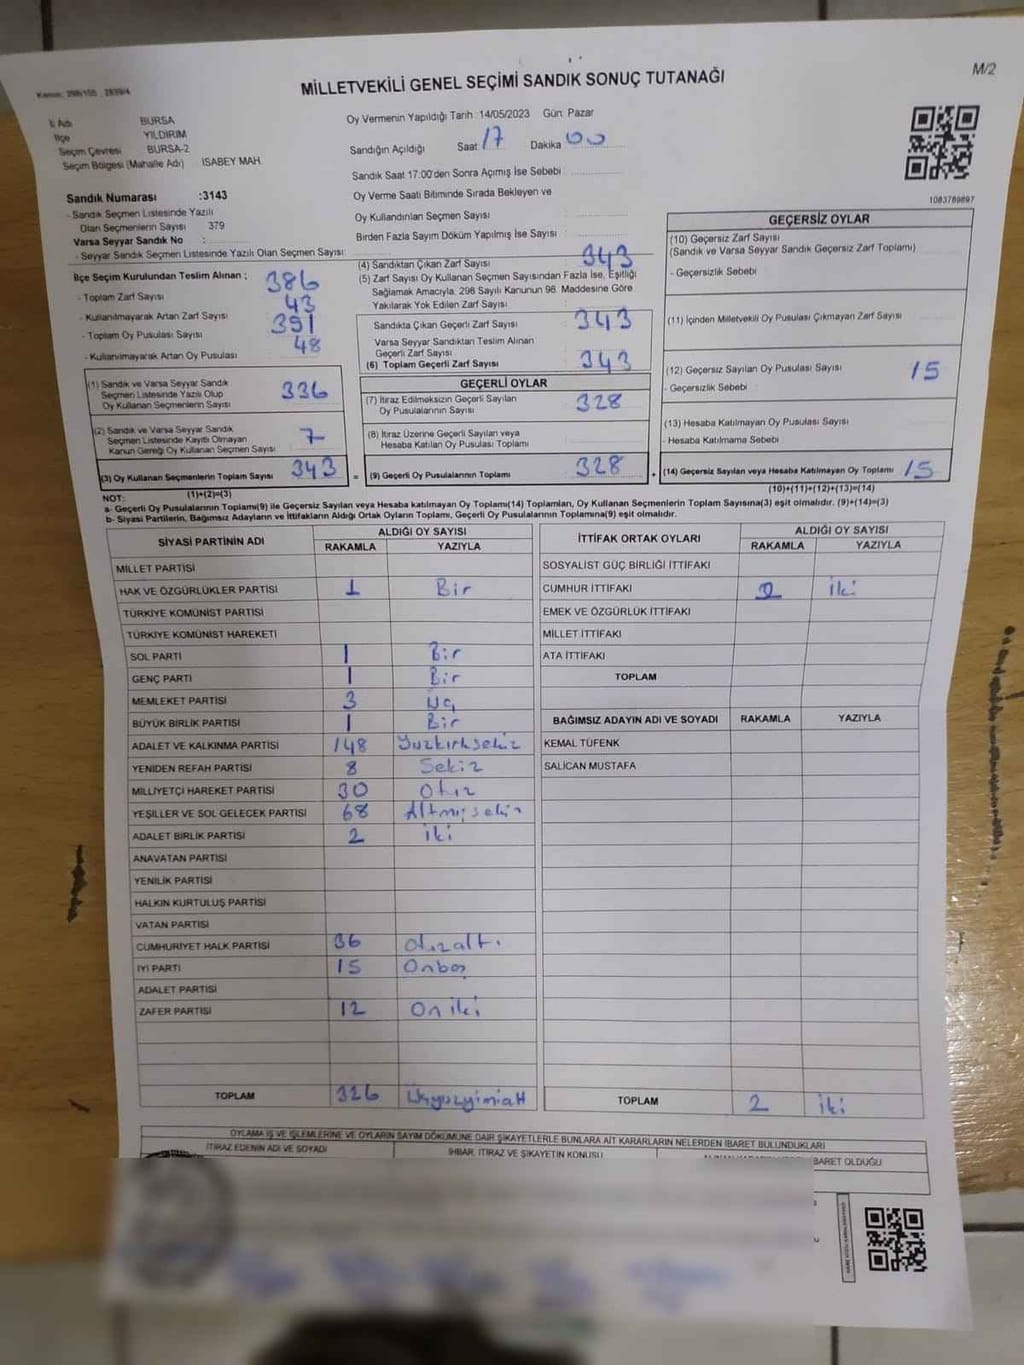 MİLLETVEKİLİ GENEL SEÇİMİ SANDIK SONUÇ TUTANAĞI
M/2
İl Adı BURSA
İlçe YILDIRIM
Seçim Çevresi BURSA-2
Seçim Bölgesi (Mahalle Adı) İSABEY MAH.
Oy Vermenin Yapıldığı Tarih : 14/05/2023 Gün: Pazar
Sandığın Açıldığı Saat 17 Dakika 00
Sandık Saat 17:00'den Sonra Açımış İse Sebebi :
Oy Verme Saati Bitiminde Sırada Bekleyen ve
Oy Kullandırılan Seçmen Sayısı :
Birden Fazla Sayım Döküm Yapılmış İse Sayısı :
1083789897
Sandık Numarası :3143
- Sandık Seçmen Listesinde Yazılı
Olan Seçmenlerin Sayısı 379
Varsa Seyyar Sandık No :
- Seyyar Sandık Seçmen Listesinde Yazılı Olan Seçmen Sayısı:
İlçe Seçim Kurulundan Teslim Alınan ;
- Toplam Zarf Sayısı 386
- Kullanılmayarak Artan Zarf Sayısı 43
- Toplam Oy Pusulası Sayısı 391
- Kullanılmayarak Artan Oy Pusulası 48
(1) Sandık ve Varsa Seyyar Sandık
Seçmen Listesinde Yazılı Olup
Oy Kullanan Seçmenlerin Sayısı 336
(2) Sandık ve Varsa Seyyar Sandık
Seçmen Listesinde Kayıtlı Olmayan
Kanun Gereği Oy Kullanan Seçmen Sayısı 7
(3) Oy Kullanan Seçmenlerin Toplam Sayısı 343
(1)+(2)=(3)
(4) Sandıktan Çıkan Zarf Sayısı : 343
(5) Zarf Sayısı Oy Kullanan Seçmen Sayısından Fazla İse, Eşitliği
Sağlamak Amacıyla, 298 Sayılı Kanunun 98. Maddesine Göre
Yakılarak Yok Edilen Zarf Sayısı :
Sandıkta Çıkan Geçerli Zarf Sayısı : 343
Varsa Seyyar Sandıktan Teslim Alınan
Geçerli Zarf Sayısı :
(6) Toplam Geçerli Zarf Sayısı : 343
GEÇERLİ OYLAR
(7) İtiraz Edilmeksizin Geçerli Sayılan
Oy Pusulalarının Sayısı : 328
(8) İtiraz Üzerine Geçerli Sayılan veya
Hesaba Katılan Oy Pusulası Toplamı :
= (9) Geçerli Oy Pusulalarının Toplamı : 328 +
GEÇERSİZ OYLAR
(10) Geçersiz Zarf Sayısı :
(Sandık ve Varsa Seyyar Sandık Geçersiz Zarf Toplamı)
- Geçersizlik Sebebi :
(11) İçinden Milletvekili Oy Pusulası Çıkmayan Zarf Sayısı :
(12) Geçersiz Sayılan Oy Pusulası Sayısı : 15
- Geçersizlik Sebebi :
(13) Hesaba Katılmayan Oy Pusulası Sayısı :
- Hesaba Katılmama Sebebi :
(14) Geçersiz Sayılan veya Hesaba Katılmayan Oy Toplamı : 15
(10)+(11)+(12)+(13)=(14)
NOT:
a- Geçerli Oy Pusulalarının Toplamı(9) ile Geçersiz Sayılan veya Hesaba katılmayan Oy Toplamı(14) Toplamları, Oy Kullanan Seçmenlerin Toplam Sayısına(3) eşit olmalıdır. (9)+(14)=(3)
b- Siyasi Partilerin, Bağımsız Adayların ve İttifakların Aldığı Ortak Oyların Toplamı, Geçerli Oy Pusulalarının Toplamına(9) eşit olmalıdır.
SİYASİ PARTİNİN ADI ALDIĞI OY SAYISI
RAKAMLA YAZIYLA
MİLLET PARTİSİ
HAK VE ÖZGÜRLÜKLER PARTİSİ 1 Bir
TÜRKİYE KOMÜNİST PARTİSİ
TÜRKİYE KOMÜNİST HAREKETİ
SOL PARTİ 1 Bir
GENÇ PARTİ 1 Bir
MEMLEKET PARTİSİ 3 Üç
BÜYÜK BİRLİK PARTİSİ 1 Bir
ADALET VE KALKINMA PARTİSİ 148 Yüzkırksekiz
YENİDEN REFAH PARTİSİ 8 Sekiz
MİLLİYETÇİ HAREKET PARTİSİ 30 Otız
YEŞİLLER VE SOL GELECEK PARTİSİ 68 Altmışsekiz
ADALET BİRLİK PARTİSİ 2 iki
ANAVATAN PARTİSİ
YENİLİK PARTİSİ
HALKIN KURTULUŞ PARTİSİ
VATAN PARTİSİ
CUMHURİYET HALK PARTİSİ 36 otızaltı
İYİ PARTİ 15 Onbeş
ADALET PARTİSİ
ZAFER PARTİSİ 12 On iki
TOPLAM 326
İTTİFAK ORTAK OYLARI ALDIĞI OY SAYISI
RAKAMLA YAZIYLA
SOSYALİST GÜÇ BİRLİĞİ İTTİFAKI
CUMHUR İTTİFAKI 2 iki
EMEK VE ÖZGÜRLÜK İTTİFAKI
MİLLET İTTİFAKI
ATA İTTİFAKI
TOPLAM
BAĞIMSIZ ADAYIN ADI VE SOYADI RAKAMLA YAZIYLA
KEMAL TÜFENK
SALİCAN MUSTAFA
TOPLAM 2 iki
OYLAMA İŞ VE İŞLEMLERİNE VE OYLARIN SAYIM DÖKÜMÜNE DAİR ŞİKAYETLERLE BUNLARA AİT KARARLARIN NELERDEN İBARET BULUNDUKLARI
İTİRAZ EDENİN ADI VE SOYADI
İHBAR, İTİRAZ VE ŞİKAYETİN KONUSU
İBARET OLDUĞU